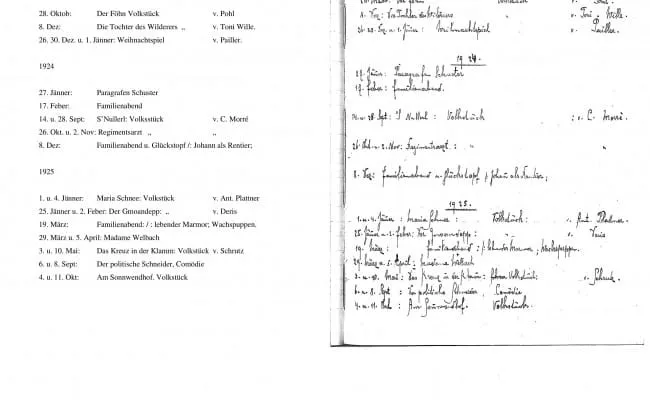 28. Oktob: Der Föhn Volkstück v. Pohl
8. Dez: Die Tochter des Wilderers „ v. Toni Wille.
26. 30. Dez. u. 1. Jänner: Weihnachtspiel v. Pailler.
1924
27. Jänner: Paragrafen Schuster
17. Feber: Familienabend
14. u. 28. Sept: S'Nullerl: Volksstück v. C. Morré
26. Okt. u. 2. Nov: Regimentsarzt „ „
8. Dez: Familienabend u. Glückstopf /: Johann als Rentier;
1925
1. u. 4. Jänner: Maria Schnee: Volkstück v. Ant. Plattner
25. Jänner u. 2. Feber: Der Gmoandepp: „ v. Deris
19. März: Familienabend: / : lebender Marmor; Wachspuppen.
29. März u. 5. April: Madame Welbach
3. u. 10. Mai: Das Kreuz in der Klamm: Volkstück v. Schrutz
6. u. 8. Sept: Der politische Schneider, Comödie
4. u. 11. Okt: Am Sonnwendhof. Volkstück
1924.
27. Jänn: Paragrafen Schuster
17. Feber: Familienabend.
14. u. 28. Sept: S' Nullerl: Volkstück : v. C. Morré.
26. Okt. u. 2. Nov: Regimentsarzt: „ „
8. Dez: Familienabend u. Glückstopf /: Johann als Rentier;
1925.
1. u. 4. Jänner: Maria Schnee: Volkstück: v. Ant. Plattner.
25. Jänner u. 2. Feber: Der „ v.
19. März: Familienabend: /: Wachspuppen.
29. März u. 5. April: Madame Welbach
3. u. 10. Mai: Das Kreuz in der Klamm: Volkstück: v.
6. u. 8. Sept: Der politische Schneider, Comödie
4. u. 11. Okt: Am Sonnwendhof. Volkstück.